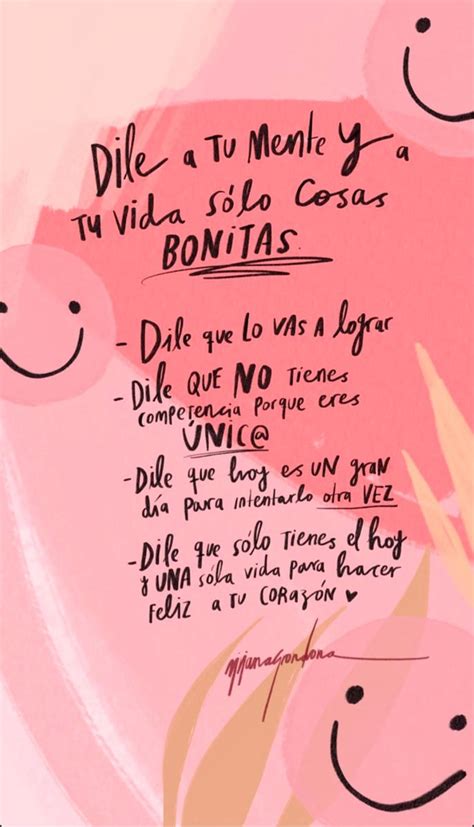 Dile a tu mente y a
tu vida sólo cosas
BONITAS.
- Dile que lo vas a lograr
- Dile QUE NO tienes
competencia porque eres
ÚNIC@
- Dile que hoy es un gran
día para intentarlo otra VEZ
- Dile que sólo tienes el hoy
y UNA sóla vida para hacer
feliz a tu corazón ♥